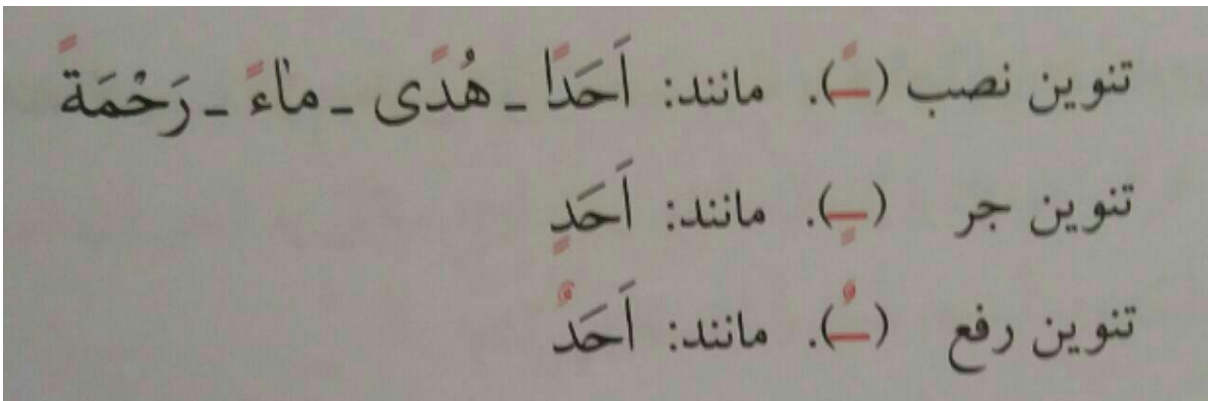 تنوین نصب (ـً). مانند: اَحَدًا ـ هُدًی ـ مٰاءً ـ رَحْمَةً
تنوین جر (ـٍ). مانند: اَحَدٍ
تنوین رفع (ـٌ). مانند: اَحَدٌ